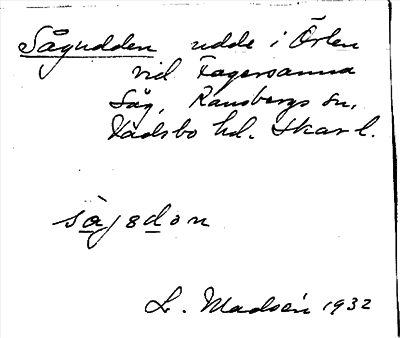 Sågudden udde i Örlen
vid Fagersanna
Såg, Ransbergs sn,
Vadsbo hd. Skar l.
sågsdon
L. Madsén 1932